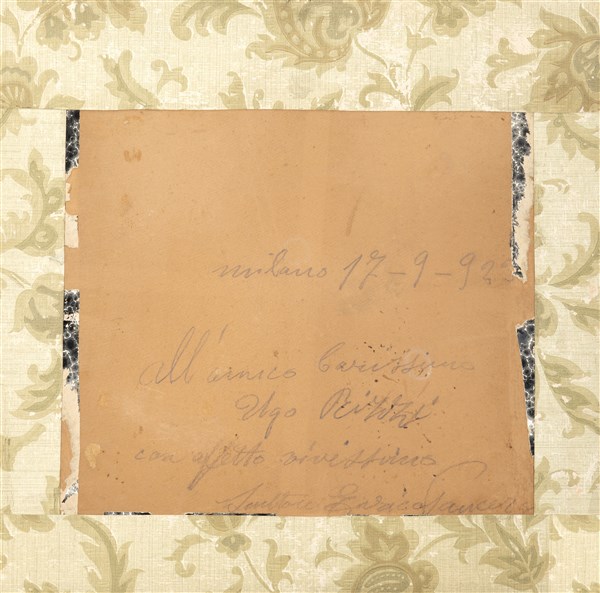 milano 17-9-922
All'amico Carissimo
Ugo Rizzi
con affetto vivissimo